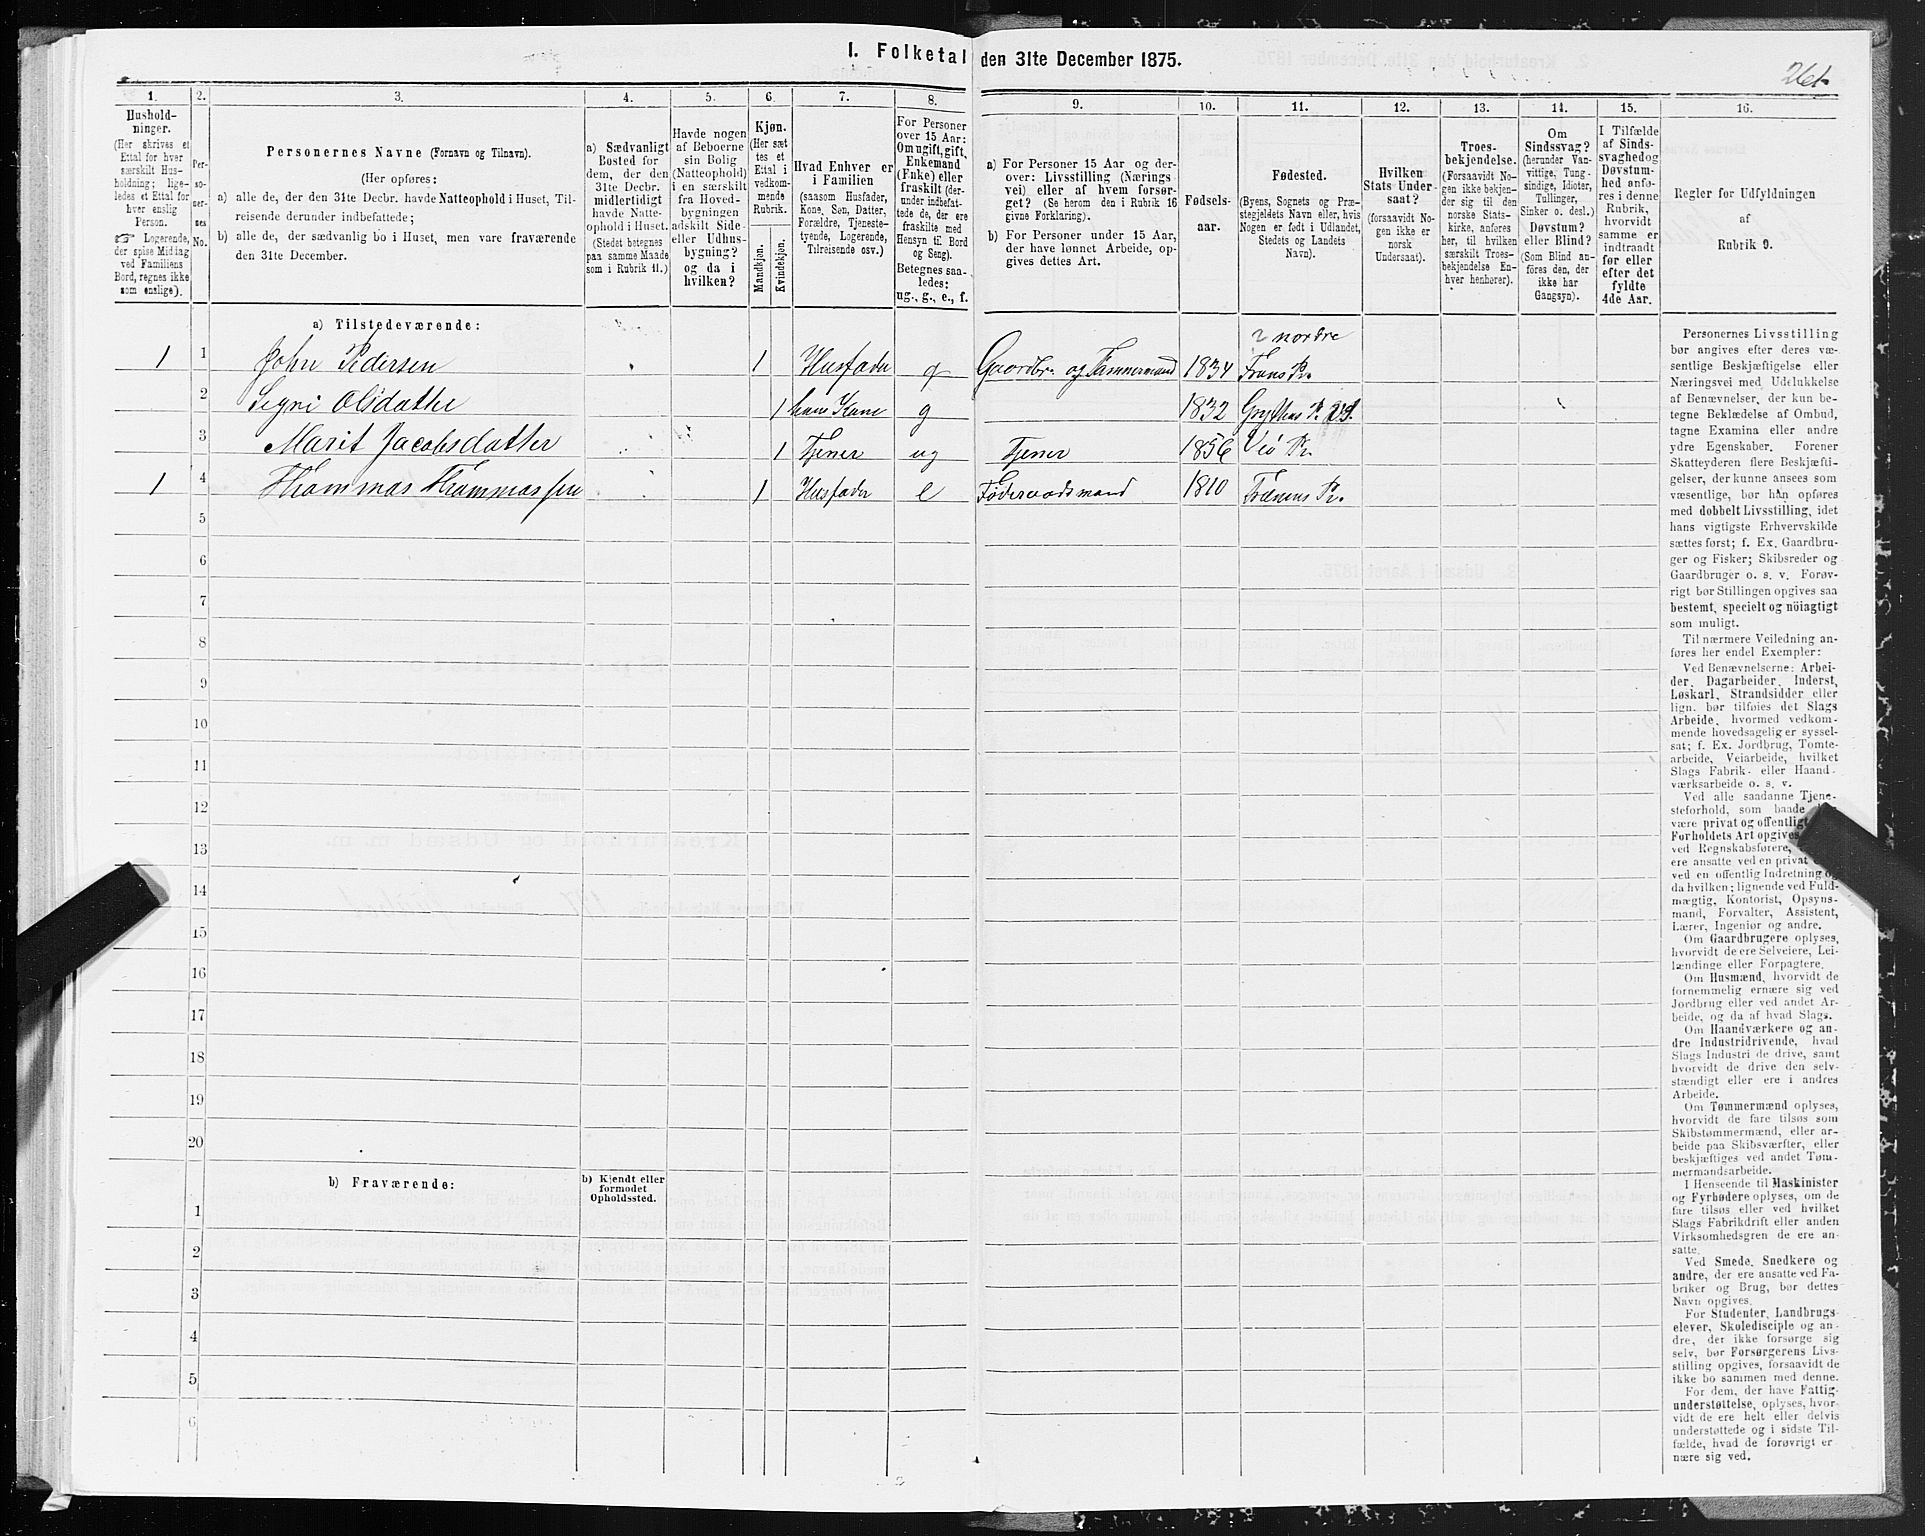 I. Folketal den 31te December 1875.
261
1. 2. 3. 4. 5. 6. 7. 8. 9. 10. 11. 12. 13. 14. 15. 16.
Hushold-
ninger.
(Her skrives et
Ettal for hver
særskilt Hus-
holdning; lige-
ledes et Ettal for
hver enslig
Person.
☞ Logerende,
der spise Middag
ved Familiens
Bord, regnes ikke
som enslige).
Per-
so-
ner-
nes
No.
Personernes Navne (Fornavn og Tilnavn).
(Her opføres:
a) alle de, der den 31te Decbr. havde Natteophold i Huset, Til-
reisende derunder indbefattede;
b) alle de, der sædvanlig bo i Huset, men vare fraværende
den 31te December.
a) Sædvanligt
Bosted for
dem, der den
31te Decbr.
midlertidigt
havde Natte-
ophold i Huset.
(Stedet betegnes
paa samme Maade
som i Rubrik 11.)
Havde nogen
af Beboerne
sin Bolig
(Natteophold)
i en særskilt
fra Hoved-
bygningen
adskilt Side-
eller Udhus-
bygning?
og da i
hvilken?
Kjøn.
(Her sæt
tes et
Ettal i
vedkom-
mende
Rubrik.
Mandkjøn.
Kvindekjøn.
Hvad Enhver er
i Familien
(saasom Husfader,
Kone, Søn, Datter,
Forældre, Tjeneste-
tyende, Logerende,
Tilreisende osv.)
For Personer
over 15 Aar:
Om ugift, gift,
Enkemand
(Enke) eller
fraskilt (der-
under indbefat-
tede de, der ere
fraskilte med
Hensyn til Bord
og Seng).
Betegnes saa-
ledes:
ug., g., e., f.
a) For Personer 15 Aar og der-
over: Livsstilling (Nærings
vei) eller af hvem forsør-
get? (Se herom den i Rubrik 16
givne Forklaring).
b) For Personer under 15 Aar,
der have lønnet Arbeide, op-
gives dettes Art.
Fødsels-
aar.
Fødested.
(Byens, Sognets og Præ-
stegjeldets Navn eller, hvis
Nogen er født i Udlandet,
Stedets og Landets
Navn).
Hvilken
Stats Under-
saat?
(forsaavidt No-
gen ikke er
norsk
Undersaat).
Troes-
bekjendelse.
(Forsaavidt No-
gen ikke bekjen-
der sig til den
norske Stats-
kirke, anføres
her, til hvilken
særskilt Troes-
bekjendelse En-
hver henhører).
Om
Sindssvag?
(herunder Van-
vittige, Tung-
sindige, Idioter,
Tullinger,
Sinker o. desl.)
Døvstum?
eller Blind?
(Som Blind an-
føres den, der
ikke har
Gangsyn).
I Tilfælde
af Sinds-
svaghedog
Døvstum-
hed anfø-
res i denne
Rubrik,
hvorvidt
samme er
indtraadt
før eller
efter det
fyldte
4de Aar.
Regler for Udfyldningen
af
Rubrik 9.
a) Tilstedeværende:
1 1 John Pedersen 1 Husfader g Gaardbr. og Tømmermand 1834 nordre Frons Pr.
2 Segni Olsdatter 1 hans Kone g 1832 Grythas P.
3 Marit Jacobsdatter 1 Tjener ug Tjener 1856 Veø Pr.
1 4 Thommas Thommassen 1 Husfader e Føderaadsmand 1810 Frænens Pr.
5
6
7
8
9
10
11
12
13
14
15
16
17
18
19
20
b) Fraværende:
b) Kjendt eller
formodet
Opholdssted.
1
2
3
4
5
6
Personernes Livsstilling
bør angives efter deres væ-
sentlige Beskjæftigelse eller
Næringsvei med Udelukkelse
af Benævnelser, der kun be-
tegne Beklædelse af Ombud,
tagne Examina eller andre
ydre Egenskaber. Forener
Skatteyderen flere Beskjæfti-
gelser, der kunne ansees som
væsentlige, bør han opføres
med dobbelt Livsstilling, idet
hans vigtigste Erhvervskilde
sættes først; f. Ex. Gaardbru-
ger og Fisker; Skibsreder og
Gaardbruger o. s. v. Forøv-
rigt bør Stillingen opgives saa
bestemt, specielt og nöiagtigt
som muligt.
Til nærmere Veiledning an-
føres her endel Exempler:
Ved Benævnelserne: Arbei-
der, Dagarbeider, Inderst,
Løskarl, Strandsidder eller
lign. bør tilføies det Slags
Arbeide, hvormed vedkom-
mende hovedsagelig er syssel-
sat; f. Ex. Jordbrug, Tomte-
arbeide, Veiarbeide, hvilket
Slags Fabrik- eller Haand-
værksarbeide o. s. v.
Ved alle saadanne Tjene-
steforhold, som baade
være privat og offentligt
Forholdets Art opgives
ved Regnskabsførere,
ere ansatte ved en privat
ved en offentlig Indretning og
da hvilken; lignende ved Fuld-
mægtig, Kontorist, Opsyns-
mand, Forvalter, Assistent,
Lærer, Ingeniør og andre.
Om Gaardbrugere oplyses,
hvorvidt de ere Selveiere, Lei-
lændinge eller Forpagtere.
Om Husmænd, hvorvidt de
fornemmelig ernære sig ved
Jordbrug eller ved andet Ar-
beide, og da af hvad Slags.
Om Haandværkere og an-
dre Industridrivende, hvad
Slags Industri de drive, samt
hvorvidt de drive den selv-
stændigt eller ere i andres
Arbeide.
Om Tømmermænd oplyses,
hvorvidt de fare tilsøs som
Skibstømmermænd, eller ar-
beide paa Skibsværfter, eller
beskjæftiges ved andet Tøm-
mermandsarbeide.
I Henseende til Maskinister
og Fyrbødere oplyses, om de
fare tilsøs eller ved hvilket
Slags Fabrikdrift eller anden
Virksomhedsgren de ere an-
satte.
Ved Smede, Snedkere og
andre, der ere ansatte ved Fa-
briker og Brug, bør dettes
Navn opgives.
For Studenter, Landbrugs-
elever, Skoledisciple og an-
dre, der ikke forsørge sig
selv, bør Forsørgerens Livs-
stilling opgives, forsaavidt de
ikke bo sammen med denne.
For dem, der have Fattig-
understøttelse, oplyses, hvor-
vidt de ere helt eller delvis
understøttede og i sidste Til-
fælde, hvad de forøvrigt er
nære sig ved.